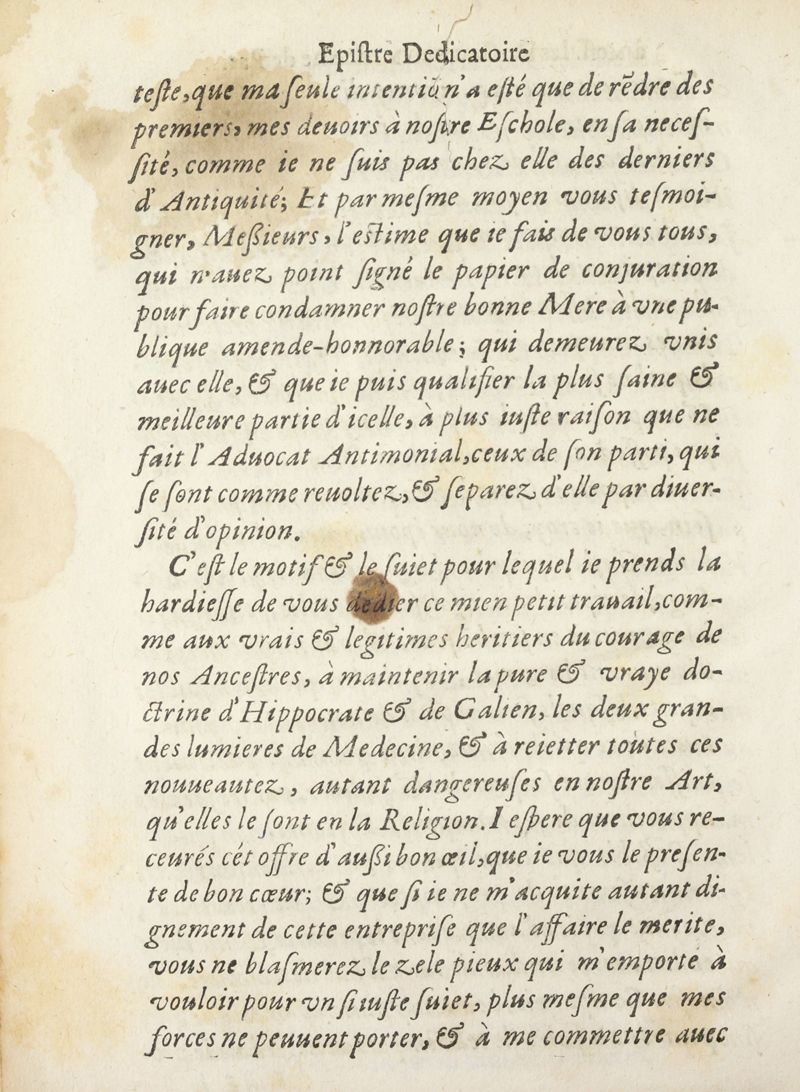 Epiſtre Dedicatoire
teſte, que ma ſeule intentiõ n'a eſté que de rẽdre des
premiers, mes deuoirs à noſtre Eſchole, en ſa neceſ-
ſité, comme ie ne ſuis pas chez elle des derniers
d'Antiquité; Et par meſme moyen vous teſmoi-
gner, Meßieurs, l'eſtime que ie fais de vous tous,
qui n'auez point ſigné le papier de conjuration
pour faire condamner noſtre bonne Mere à vne pu-
blique amende-honnorable; qui demeurez vnis
auec elle, & que ie puis qualifier la plus ſaine &
meilleure partie d'icelle, à plus iuſte raiſon que ne
fait l'Aduocat Antimonial, ceux de ſon parti, qui
ſe ſont comme reuoltez, & ſeparez d'elle par diuer-
ſité d'opinion.
C'eſt le motif & le ſuiet pour lequel ie prends la
hardieſſe de vous dedier ce mien petit trauail, com-
me aux vrais & legitimes heritiers du courage de
nos Anceſtres, à maintenir la pure & vraye do-
ctrine d'Hippocrate & de Galien, les deux gran-
des lumieres de Medecine, & à reietter toutes ces
nouueautez, autant dangereuſes en noſtre Art,
qu'elles le ſont en la Religion. I'eſpere que vous re-
ceurés cét offre d'außi bon œil, que ie vous le preſen-
te de bon cœur; & que ſi ie ne m'acquite autant di-
gnement de cette entrepriſe que l'affaire le merite,
vous ne blaſmerez le zele pieux qui m'emporte à
vouloir pour vn ſi iuſte ſuiet, plus meſme que mes
forces ne peuuent porter, & à me commettre auec